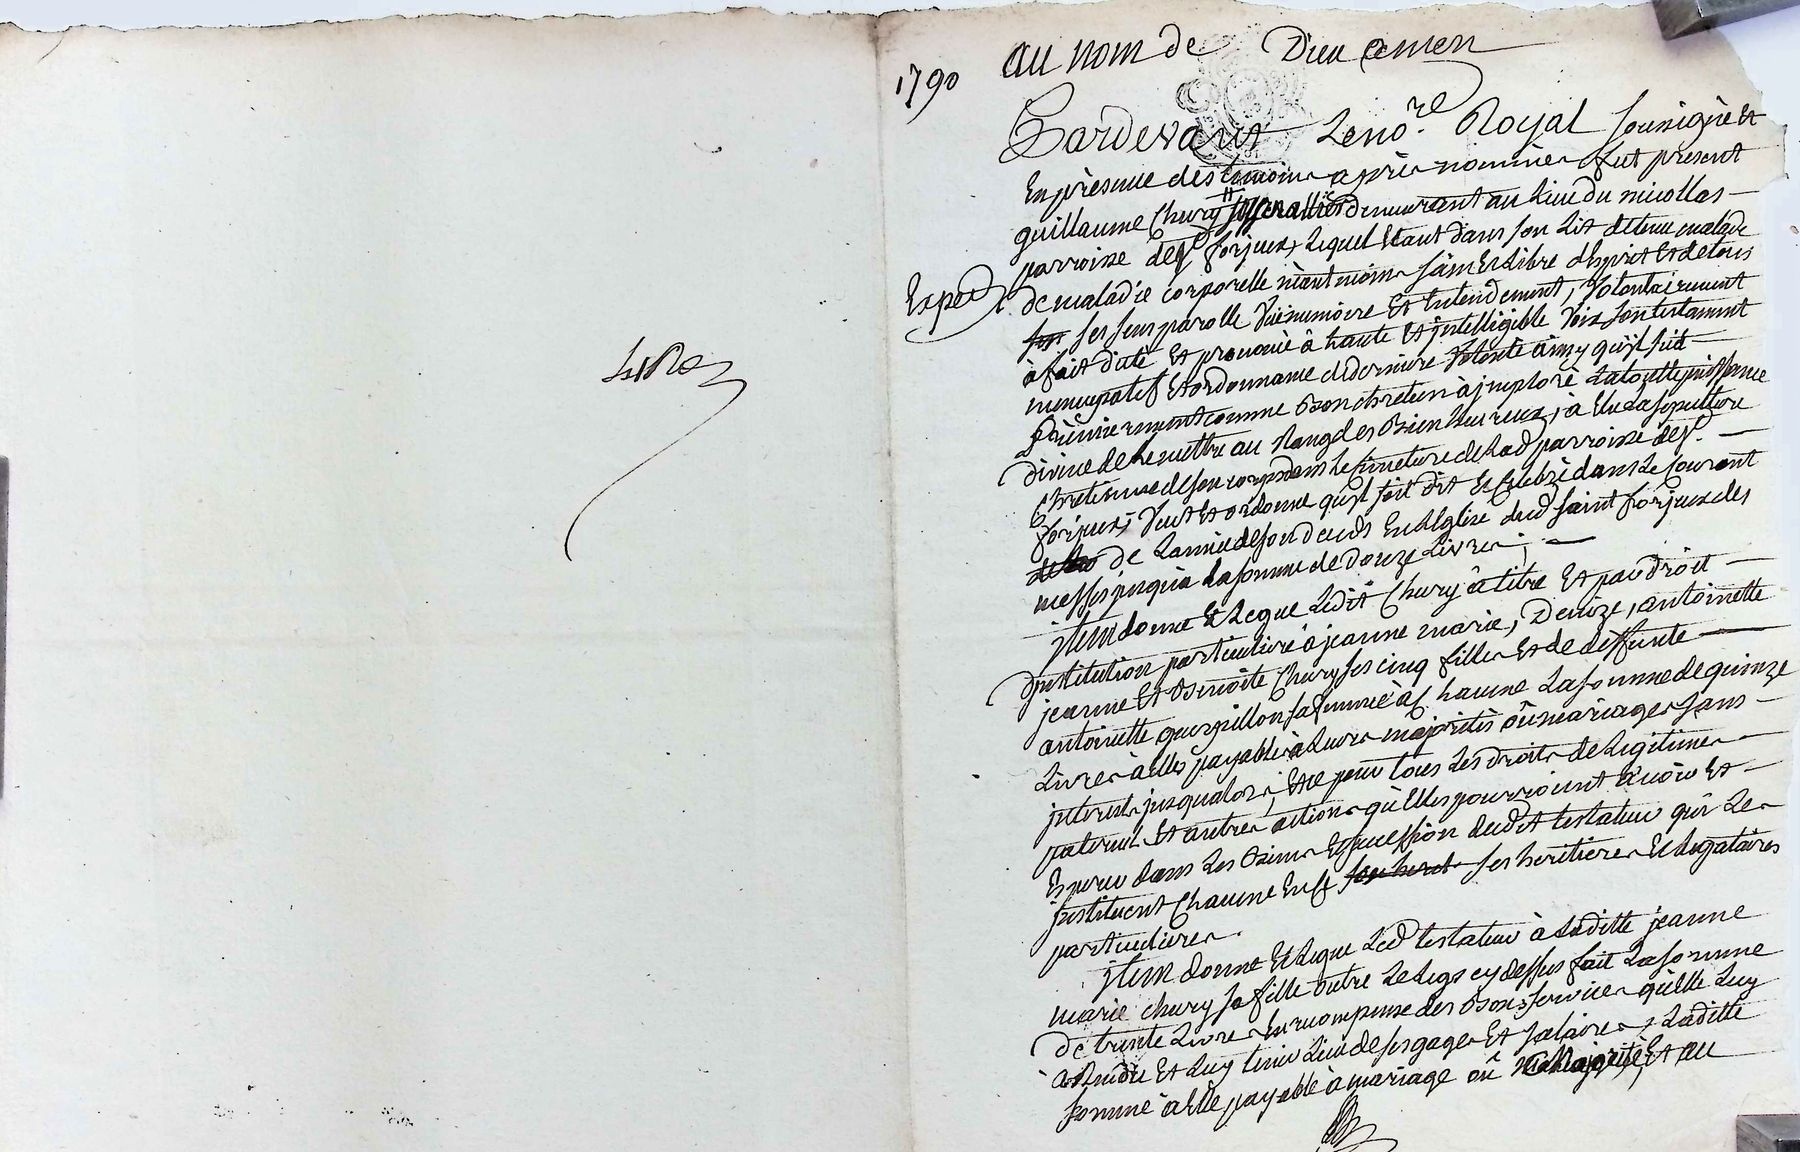 1790
au nom de Dieu amen
Pardevant Le no.re Royal soussigné et
En présence des temoins après nommés fut present
guillaume Chury demeurant au Lieu du nicollas
parroisse de St forjeux, Lequel etant dans son Lit detenu malade
Exped
de maladie corporelle néantmoins sain et Libre desprit et de tous
ses sens parolle vue memoire et entendement, volontairement
à fait dicté et prononcé à haute et jntelligible voix son testament
nuncupatif et ordonnance de derniere volonté ainsy qu'jl suit
Premierement comme bon chretien à jmploré La toutte puissance
divine de Le mettre au Rang des bienheureux, à Elu sa sepulture
chretienne de son corps dans Le simetiere de Lad parroisse de St
forjeux, veut et ordonne qu'jl soit dit et celebré dans Le courant
de L'année de son deces En L'Eglise dud saint forjeux des
messes jusqu'à La somme de douze Livres;
jtem donne et Legue Ledit Chury à titre et par droit
d'institution particuliere à jeanne marie, Denize, antoinette
jeanne et benoite Chury ses cinq filles et de deffunte
antoinette sa femme à chacune La somme de quinze
Livres à elles payable à Leurs majorités ou mariages sans
jnterest jusqu'alors, et ce pour tous Les droits de Legitimes
paternel et autres actions qu'Elles pourroient avoir et
Esperer dans Les biens et succession dudit testateur qui Les
jnstituent chacune En ce ses heritieres et Legataires
particulieres.
jtem donne et Legue Led testateur à Laditte jeanne
marie chury sa fille outre Le Legs cy dessus fait La somme
de trente Livres En recompense des bons services qu'Elle Luy
à Rendu et Luy tenir Lieu de ses gages et salaires, Laditte
somme à Elle payable à mariage ou Majorité, et au